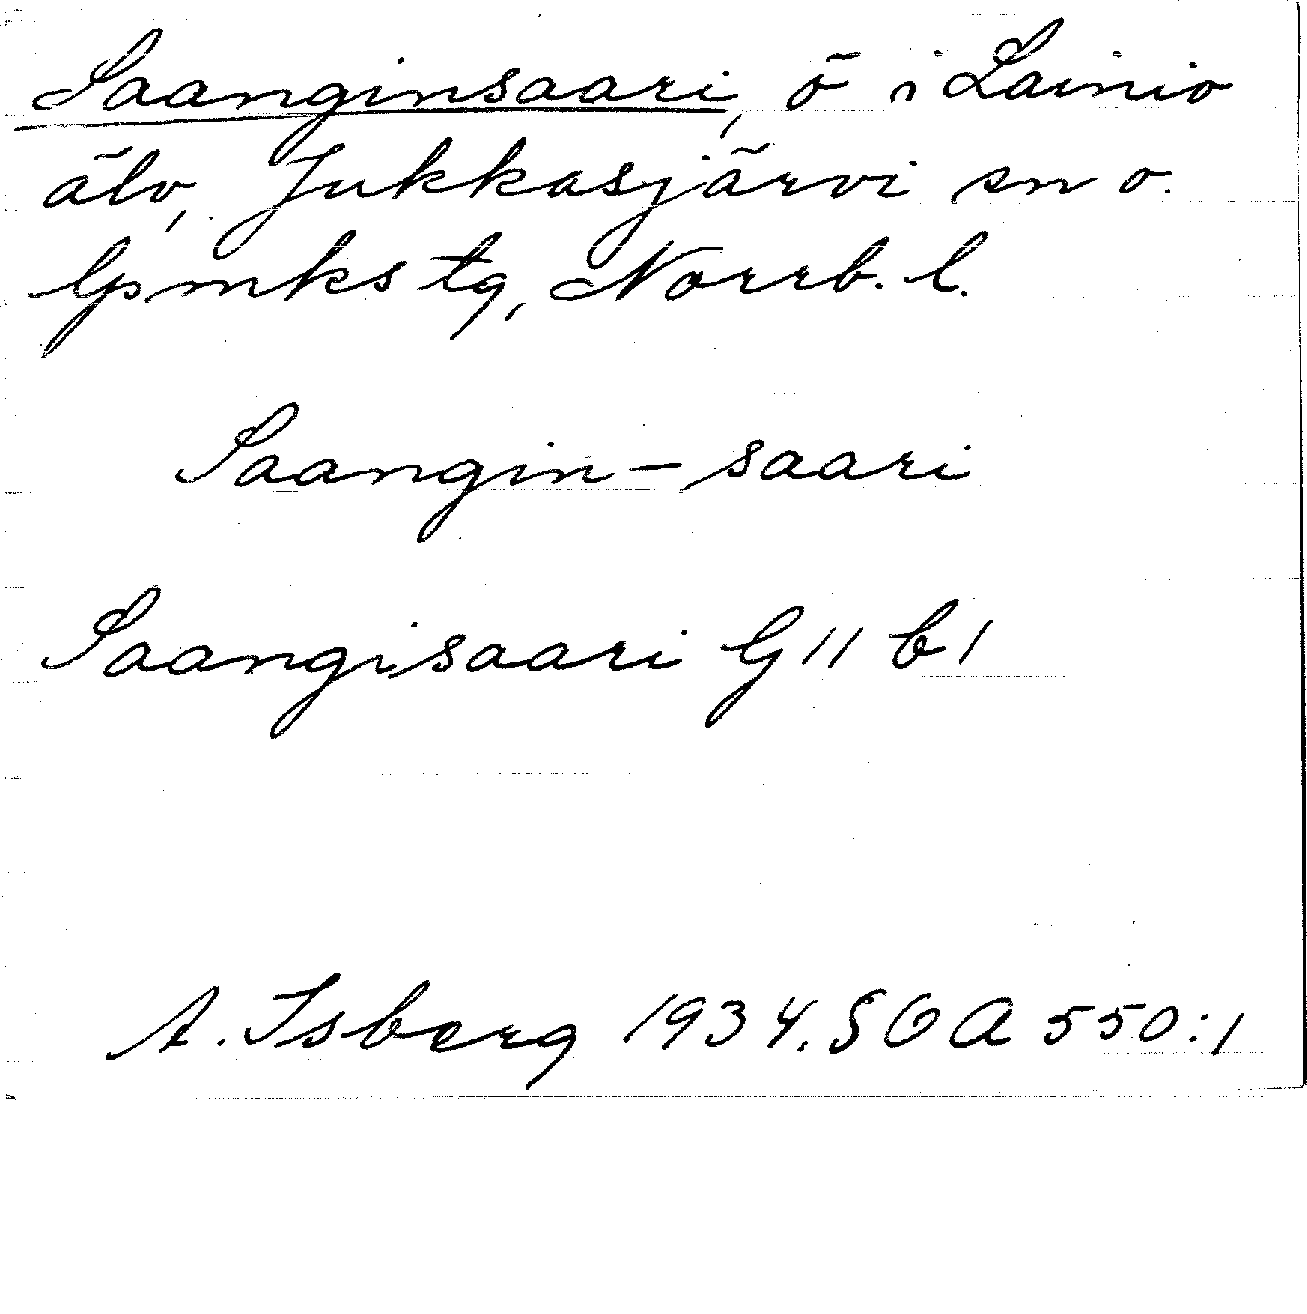 Saanginsaari, ö i Lainio
älv, Jukkasjärvi sn o.
lpmks tg, Norrb. l.
Saangin-saari
Saangisaari G 11 b 1
A. Isberg 1934. SOA 550:1